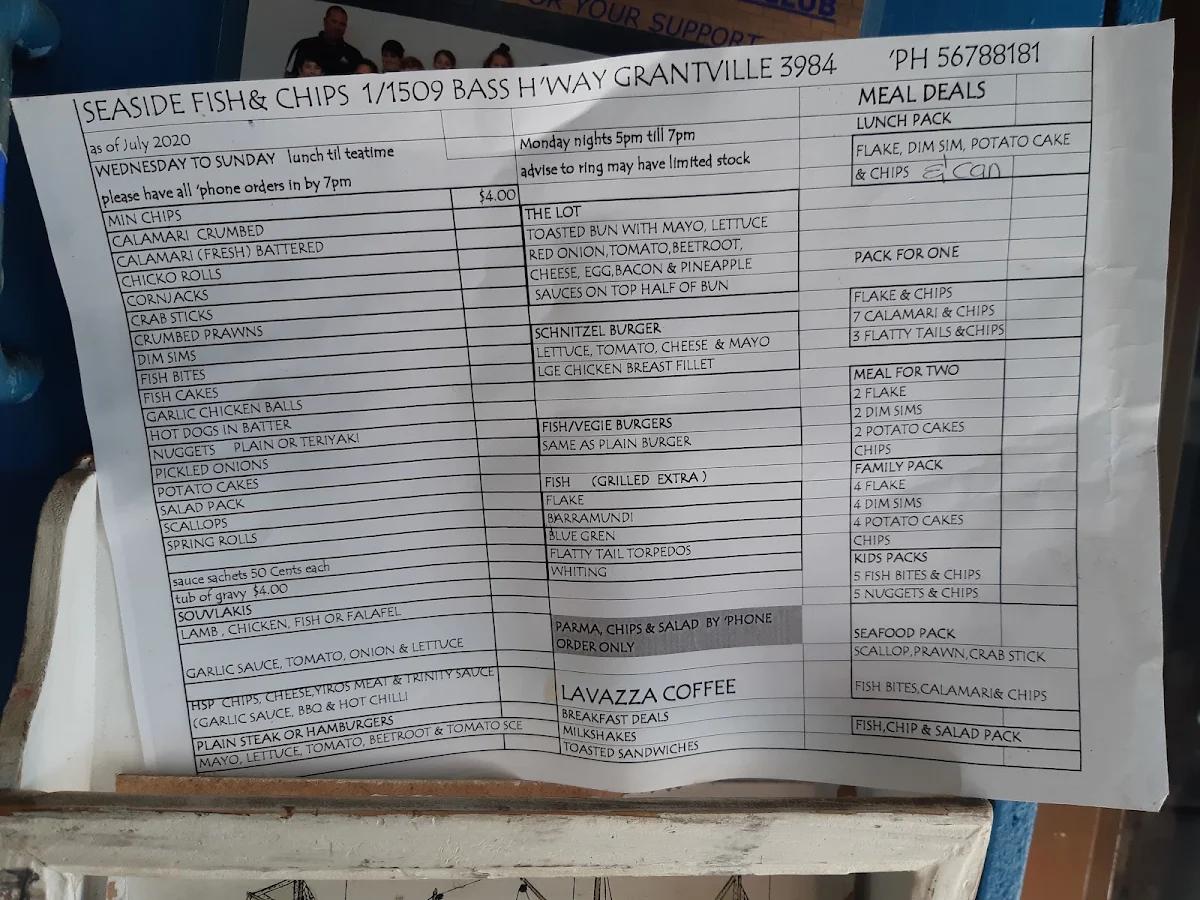 CLUB
FOR YOUR SUPPORT
SEASIDE FISH& CHIPS 1/1509 BASS H'WAY GRANTVILLE 3984 'PH 56788181
as of July 2020
WEDNESDAY TO SUNDAY lunch til teatime
please have all 'phone orders in by 7pm
MIN CHIPS $4.00
CALAMARI CRUMBED
CALAMARI (FRESH) BATTERED
CHICKO ROLLS
CORNJACKS
CRAB STICKS
CRUMBED PRAWNS
DIM SIMS
FISH BITES
FISH CAKES
GARLIC CHICKEN BALLS
HOT DOGS IN BATTER
NUGGETS PLAIN OR TERIYAKI
PICKLED ONIONS
POTATO CAKES
SALAD PACK
SCALLOPS
SPRING ROLLS
sauce sachets 50 Cents each
tub of gravy $4.00
SOUVLAKIS
LAMB , CHICKEN, FISH OR FALAFEL
GARLIC SAUCE, TOMATO, ONION & LETTUCE
HSP CHIPS, CHEESE,YIROS MEAT & TRINITY SAUCE
(GARLIC SAUCE, BBQ & HOT CHILLI
PLAIN STEAK OR HAMBURGERS
MAYO, LETTUCE, TOMATO, BEETROOT & TOMATO SCE
Monday nights 5pm till 7pm
advise to ring may have limited stock
THE LOT
TOASTED BUN WITH MAYO, LETTUCE
RED ONION,TOMATO,BEETROOT,
CHEESE, EGG,BACON & PINEAPPLE
SAUCES ON TOP HALF OF BUN
SCHNITZEL BURGER
LETTUCE, TOMATO, CHEESE & MAYO
LGE CHICKEN BREAST FILLET
FISH/VEGIE BURGERS
SAME AS PLAIN BURGER
FISH (GRILLED EXTRA )
FLAKE
BARRAMUNDI
BLUE GREN
FLATTY TAIL TORPEDOS
WHITING
PARMA, CHIPS & SALAD BY 'PHONE
ORDER ONLY
LAVAZZA COFFEE
BREAKFAST DEALS
MILKSHAKES
TOASTED SANDWICHES
MEAL DEALS
LUNCH PACK
FLAKE, DIM SIM, POTATO CAKE
& CHIPS & can
PACK FOR ONE
FLAKE & CHIPS
7 CALAMARI & CHIPS
3 FLATTY TAILS &CHIPS
MEAL FOR TWO
2 FLAKE
2 DIM SIMS
2 POTATO CAKES
CHIPS
FAMILY PACK
4 FLAKE
4 DIM SIMS
4 POTATO CAKES
CHIPS
KIDS PACKS
5 FISH BITES & CHIPS
5 NUGGETS & CHIPS
SEAFOOD PACK
SCALLOP,PRAWN,CRAB STICK
FISH BITES,CALAMARI& CHIPS
FISH,CHIP & SALAD PACK